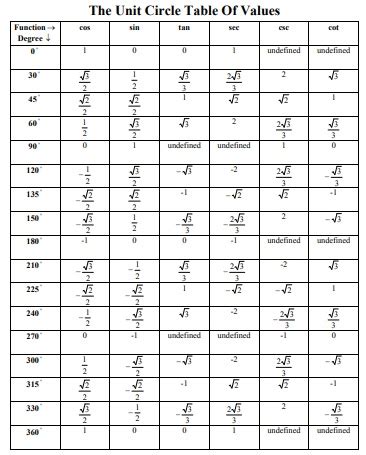 The Unit Circle Table Of Values
Function → cos sin tan sec csc cot
Degree ↓
0° 1 0 0 1 undefined undefined
30° √3/2 1/2 √3/3 2√3/3 2 √3
45° √2/2 √2/2 1 √2 √2 1
60° 1/2 √3/2 √3 2 2√3/3 √3/3
90° 0 1 undefined undefined 1 0
120° -1/2 √3/2 -√3 -2 2√3/3 -√3/3
135° -√2/2 √2/2 -1 -√2 √2 -1
150° -√3/2 1/2 -√3/3 -2√3/3 2 -√3
180° -1 0 0 -1 undefined undefined
210° -√3/2 -1/2 √3/3 -2√3/3 -2 √3
225° -√2/2 -√2/2 1 -√2 -√2 1
240° -1/2 -√3/2 √3 -2 -2√3/3 √3/3
270° 0 -1 undefined undefined -1 0
300° 1/2 -√3/2 -√3 -2 2√3/3 -√3
315° √2/2 -√2/2 -1 √2 √2 -1
330° √3/2 -1/2 -√3/3 2√3/3 2 -√3/3
360° 1 0 0 1 undefined undefined